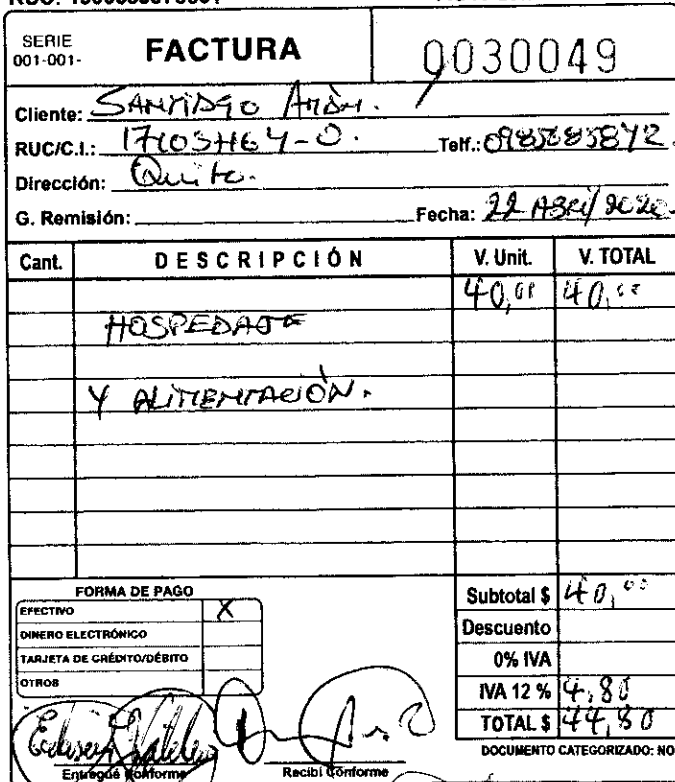 SERIE
001-001-
FACTURA
0030049
Cliente: SANTIAGO
RUC/C.I.:
Telf.: 0985285842
Dirección: Quito.
G. Remisión:
Fecha: 22 ABRIL 2020
Cant. DESCRIPCIÓN V. Unit. V. TOTAL
40,00 40,00
HOSPEDAJE
Y ALIMENTACIÓN.
FORMA DE PAGO
EFECTIVO X
DINERO ELECTRÓNICO
TARJETA DE CRÉDITO/DÉBITO
OTROS
Subtotal $ 40,00
Descuento
0% IVA
IVA 12 % 4,80
TOTAL $ 44,80
DOCUMENTO CATEGORIZADO: NO
Entregué Conforme
Recibí Conforme